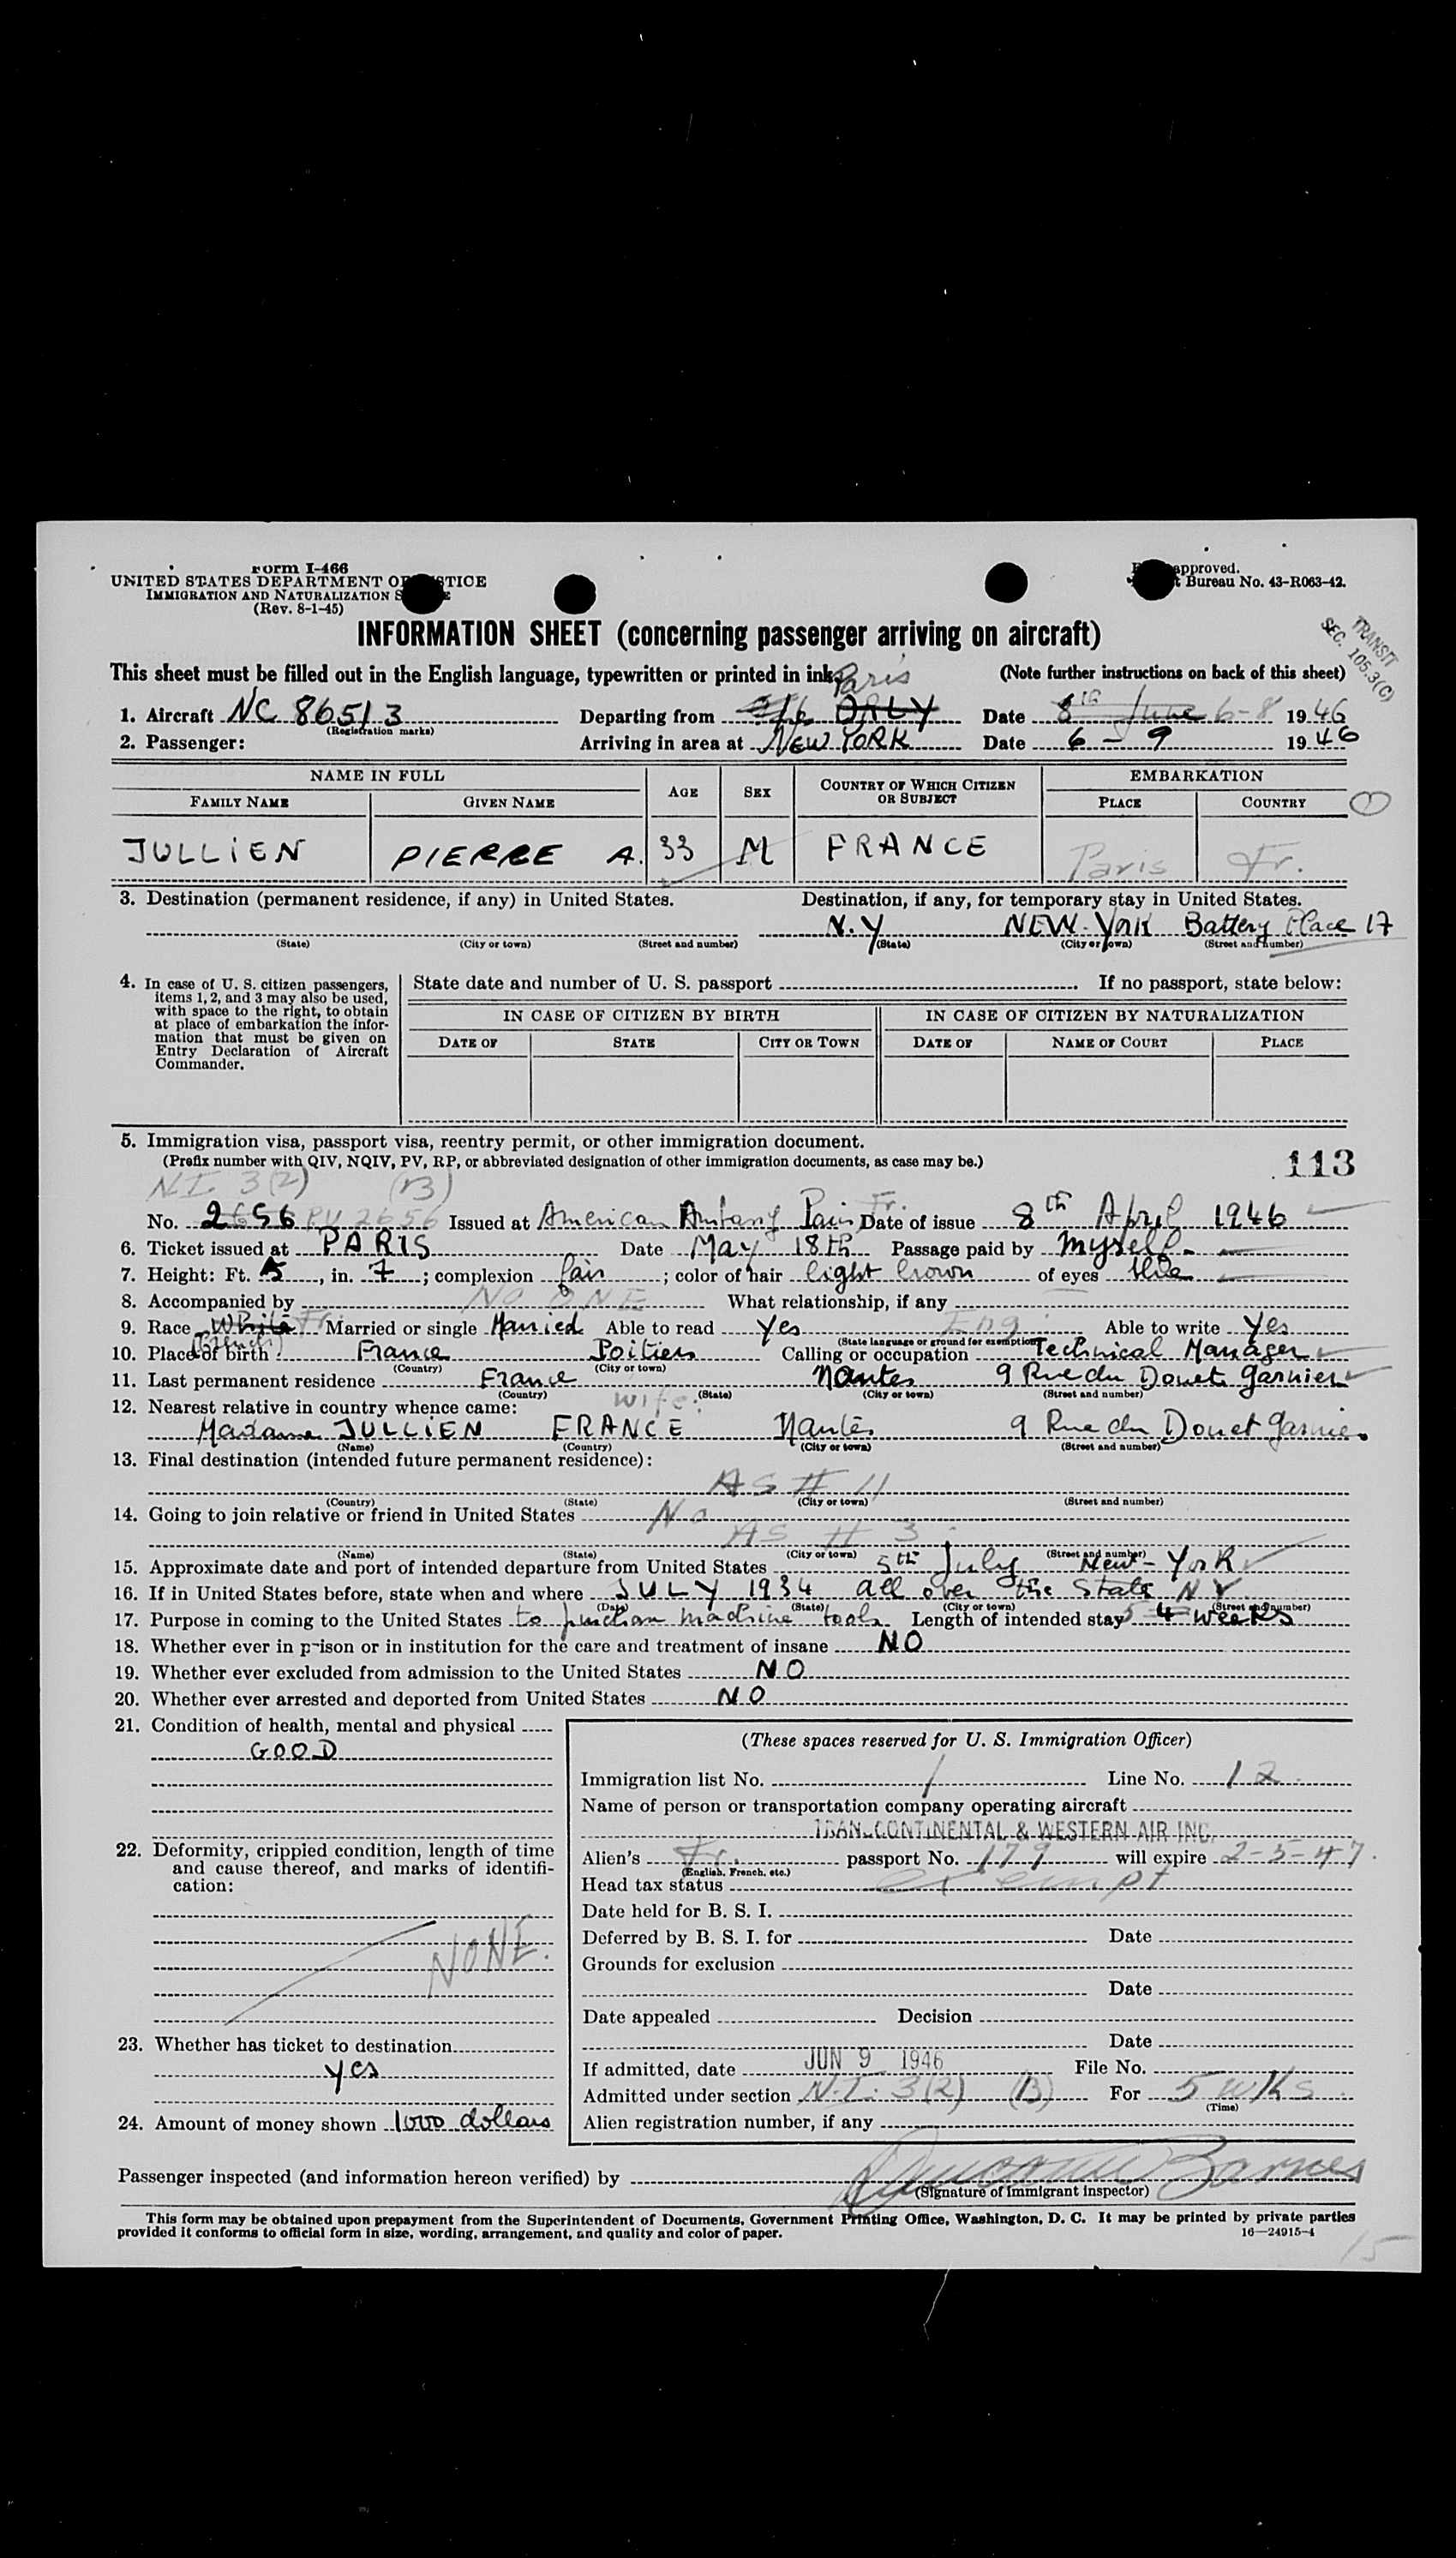 Form I-466
UNITED STATES DEPARTMENT OF JUSTICE
IMMIGRATION AND NATURALIZATION S
(Rev. 8-1-45)
approved.
Bureau No. 43-R063-42.
TRANSIT
SEC. 105.3(C)
INFORMATION SHEET (concerning passenger arriving on aircraft)
This sheet must be filled out in the English language, typewritten or printed in ink. (Note further instructions on back of this sheet)
Paris
1. Aircraft NC 86513 Departing from ORLY Date 8th June 6-8 1946
(Registration marks)
2. Passenger: Arriving in area at NEW YORK Date 6-9 1946
NAME IN FULL AGE SEX COUNTRY OF WHICH CITIZEN OR SUBJECT EMBARKATION
FAMILY NAME GIVEN NAME PLACE COUNTRY
JULLIEN PIERRE A. 33 M FRANCE Paris Fr.
3. Destination (permanent residence, if any) in United States. Destination, if any, for temporary stay in United States.
N.Y NEW-YORK Battery Place 17
(State) (City or town) (Street and number) (State) (City or town) (Street and number)
4. In case of U. S. citizen passengers, items 1, 2, and 3 may also be used, with space to the right, to obtain at place of embarkation the information that must be given on Entry Declaration of Aircraft Commander.
State date and number of U. S. passport If no passport, state below:
IN CASE OF CITIZEN BY BIRTH IN CASE OF CITIZEN BY NATURALIZATION
DATE OF STATE CITY OR TOWN DATE OF NAME OF COURT PLACE
5. Immigration visa, passport visa, reentry permit, or other immigration document.
(Prefix number with QIV, NQIV, PV, RP, or abbreviated designation of other immigration documents, as case may be.)
113
N.I. 3(2) (B)
No. 2656 PV 2656 Issued at American Ambasy Paris Fr. Date of issue 8th April 1946
6. Ticket issued at PARIS Date May 18th Passage paid by myself
7. Height: Ft. 5, in. 7; complexion fair; color of hair light brown of eyes blue
8. Accompanied by NO ONE What relationship, if any
9. Race White Fr. Married or single Married Able to read Yes Eng. Able to write Yes
(French) (State language or ground for exemption)
10. Place of birth France Poitiers Calling or occupation Technical Manager
(Country) (City or town)
11. Last permanent residence France Nantes 9 Rue du Douet Garnier
(Country) (State) (City or town) (Street and number)
12. Nearest relative in country whence came: wife:
Madame JULLIEN FRANCE Nantes 9 Rue du Douet Garnier
(Name) (Country) (City or town) (Street and number)
13. Final destination (intended future permanent residence):
AS # 11
(Country) (State) (City or town) (Street and number)
14. Going to join relative or friend in United States No
AS # 3
(Name) (State) (City or town) (Street and number)
15. Approximate date and port of intended departure from United States 5th July New-York
16. If in United States before, state when and where JULY 1934 all over the State NY
(Date) (State) (City or town) (Street and number)
17. Purpose in coming to the United States to machine tools Length of intended stay 5 4 weeks
18. Whether ever in prison or in institution for the care and treatment of insane NO
19. Whether ever excluded from admission to the United States NO
20. Whether ever arrested and deported from United States NO
21. Condition of health, mental and physical
GOOD
22. Deformity, crippled condition, length of time and cause thereof, and marks of identification:
NONE.
23. Whether has ticket to destination
yes
24. Amount of money shown 1000 dollars
(These spaces reserved for U. S. Immigration Officer)
Immigration list No. 1 Line No. 12
Name of person or transportation company operating aircraft
TRANSCONTINENTAL & WESTERN AIR INC.
Alien's Fr. passport No. 179 will expire 2-5-47.
(English, French, etc.)
Head tax status exempt
Date held for B. S. I.
Deferred by B. S. I. for Date
Grounds for exclusion
Date
Date appealed Decision
Date
If admitted, date JUN 9 1946 File No.
Admitted under section N.I. 3(2) (B) For 5 wks.
(Time)
Alien registration number, if any
Passenger inspected (and information hereon verified) by Barnes
(Signature of immigrant inspector)
This form may be obtained upon prepayment from the Superintendent of Documents, Government Printing Office, Washington, D. C. It may be printed by private parties
provided it conforms to official form in size, wording, arrangement, and quality and color of paper. 16—24915-1
15